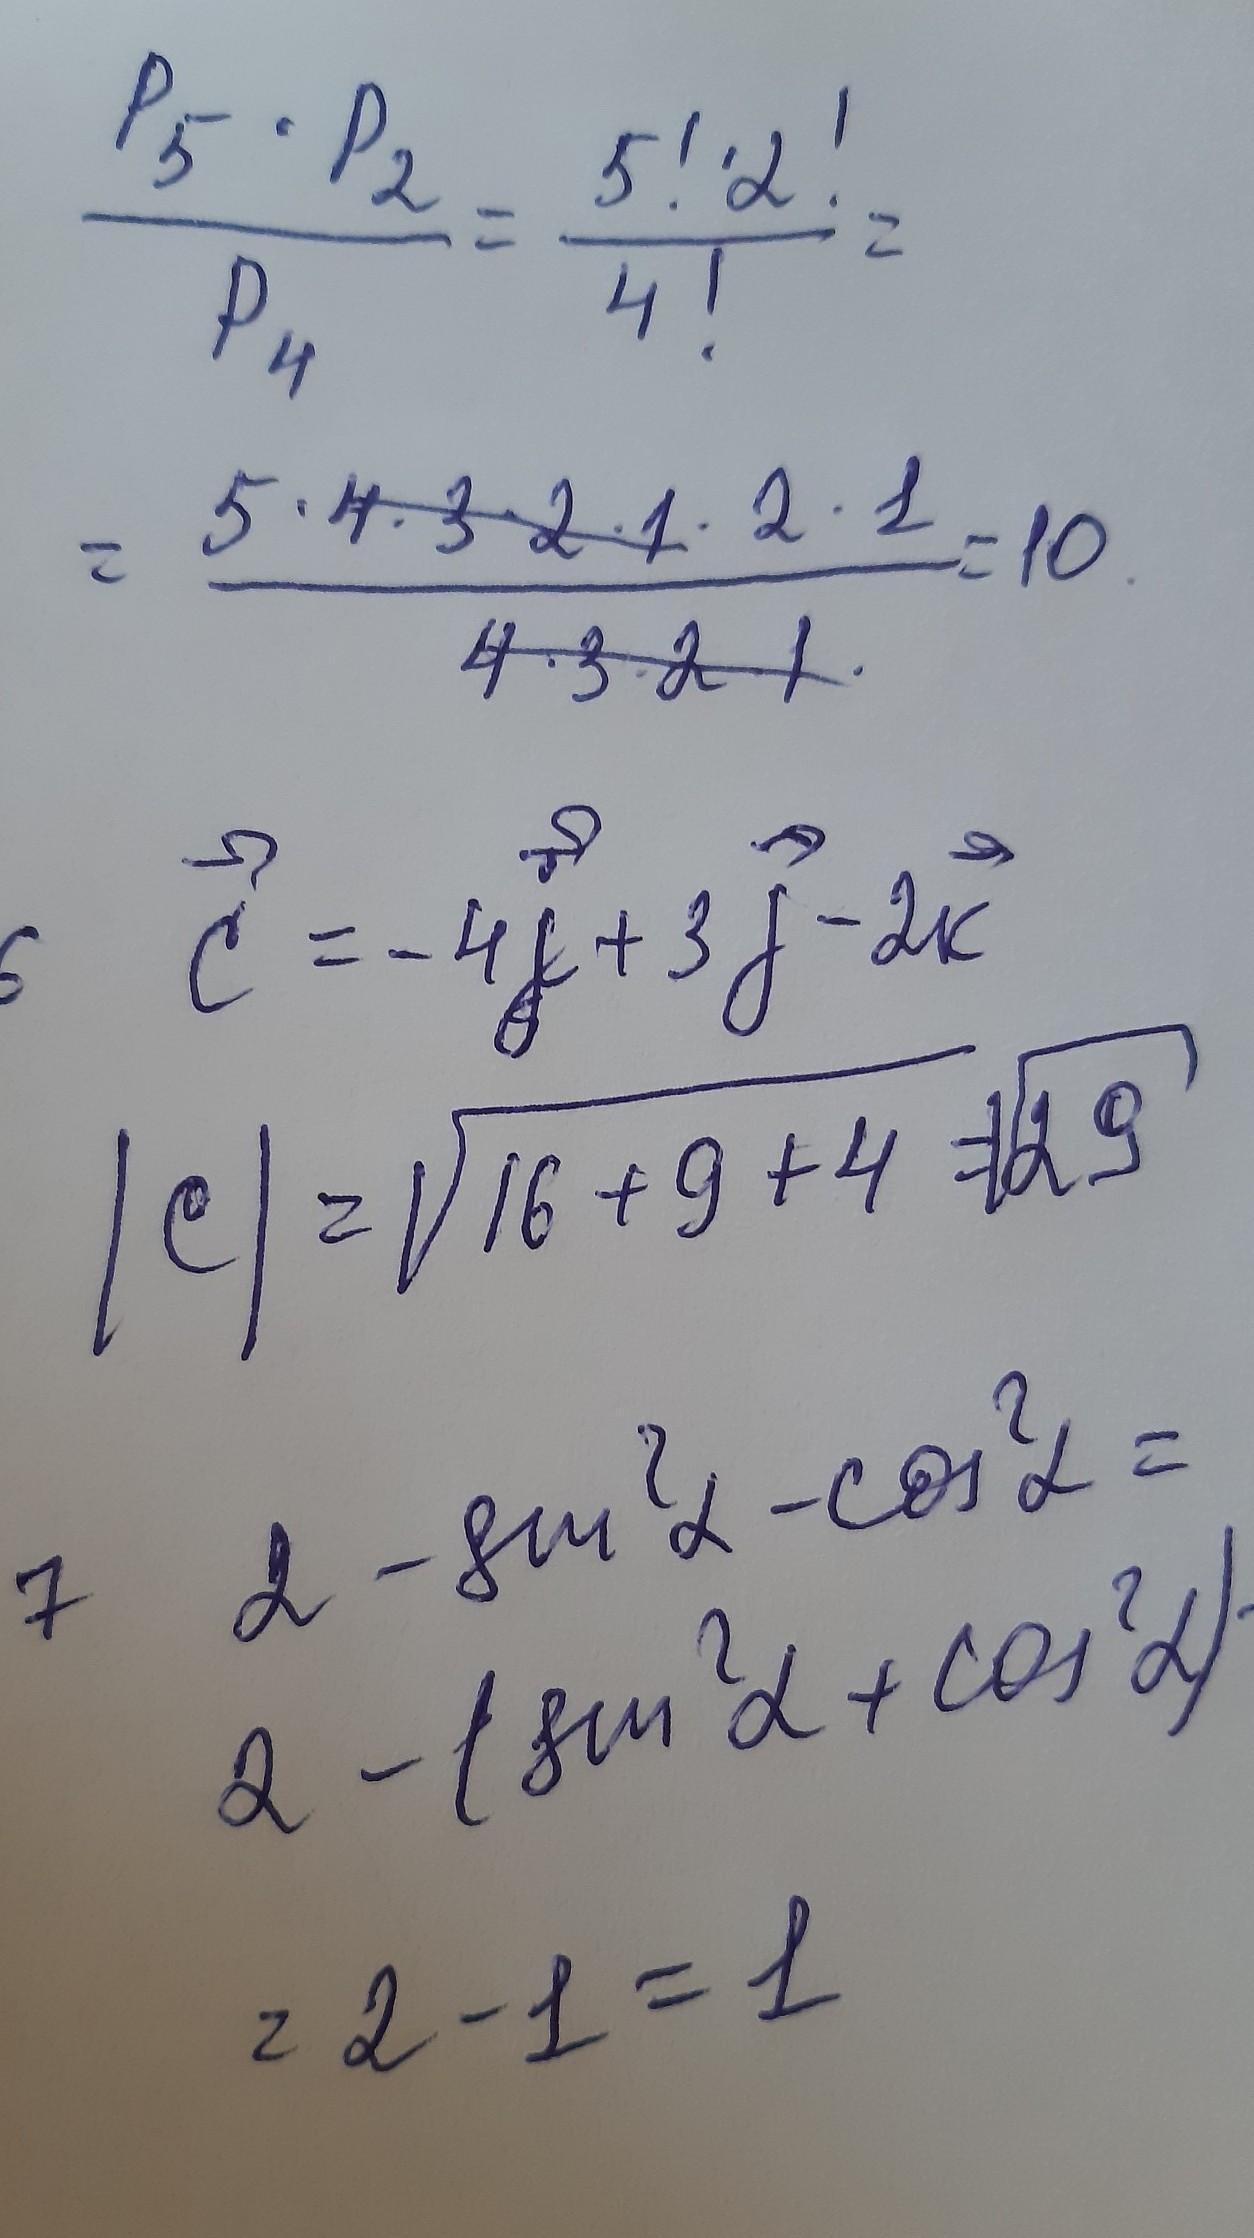 P₅ · P₂ / P₄ = 5! · 2! / 4! =
= 5 · 4 · 3 · 2 · 1 · 2 · 1 / 4 · 3 · 2 · 1 · = 10
6 c⃗ = -4j⃗ + 3j⃗ - 2k⃗
|c| = √16 + 9 + 4 = √29
7 2 - sin²α - cos²α =
2 - (sin²α + cos²α) =
= 2 - 1 = 1